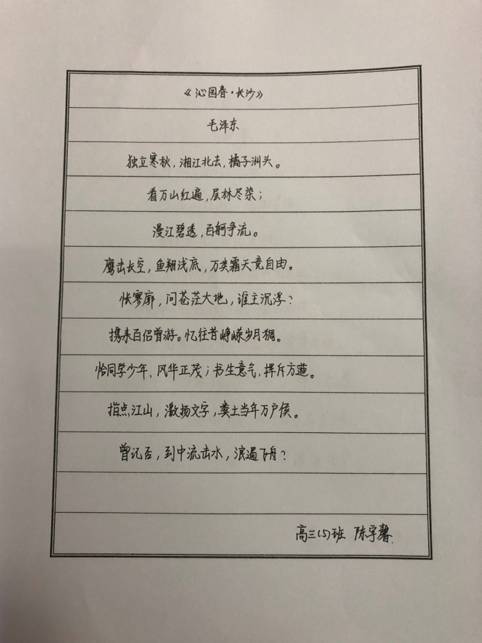 《沁园春·长沙》
毛泽东
独立寒秋，湘江北去，橘子洲头。
看万山红遍，层林尽染；
漫江碧透，百舸争流。
鹰击长空，鱼翔浅底，万类霜天竞自由。
怅寥廓，问苍茫大地，谁主沉浮？
携来百侣曾游。忆往昔峥嵘岁月稠。
恰同学少年，风华正茂；书生意气，挥斥方遒。
指点江山，激扬文字，粪土当年万户侯。
曾记否，到中流击水，浪遏飞舟？
高三(5)班 陈宇馨